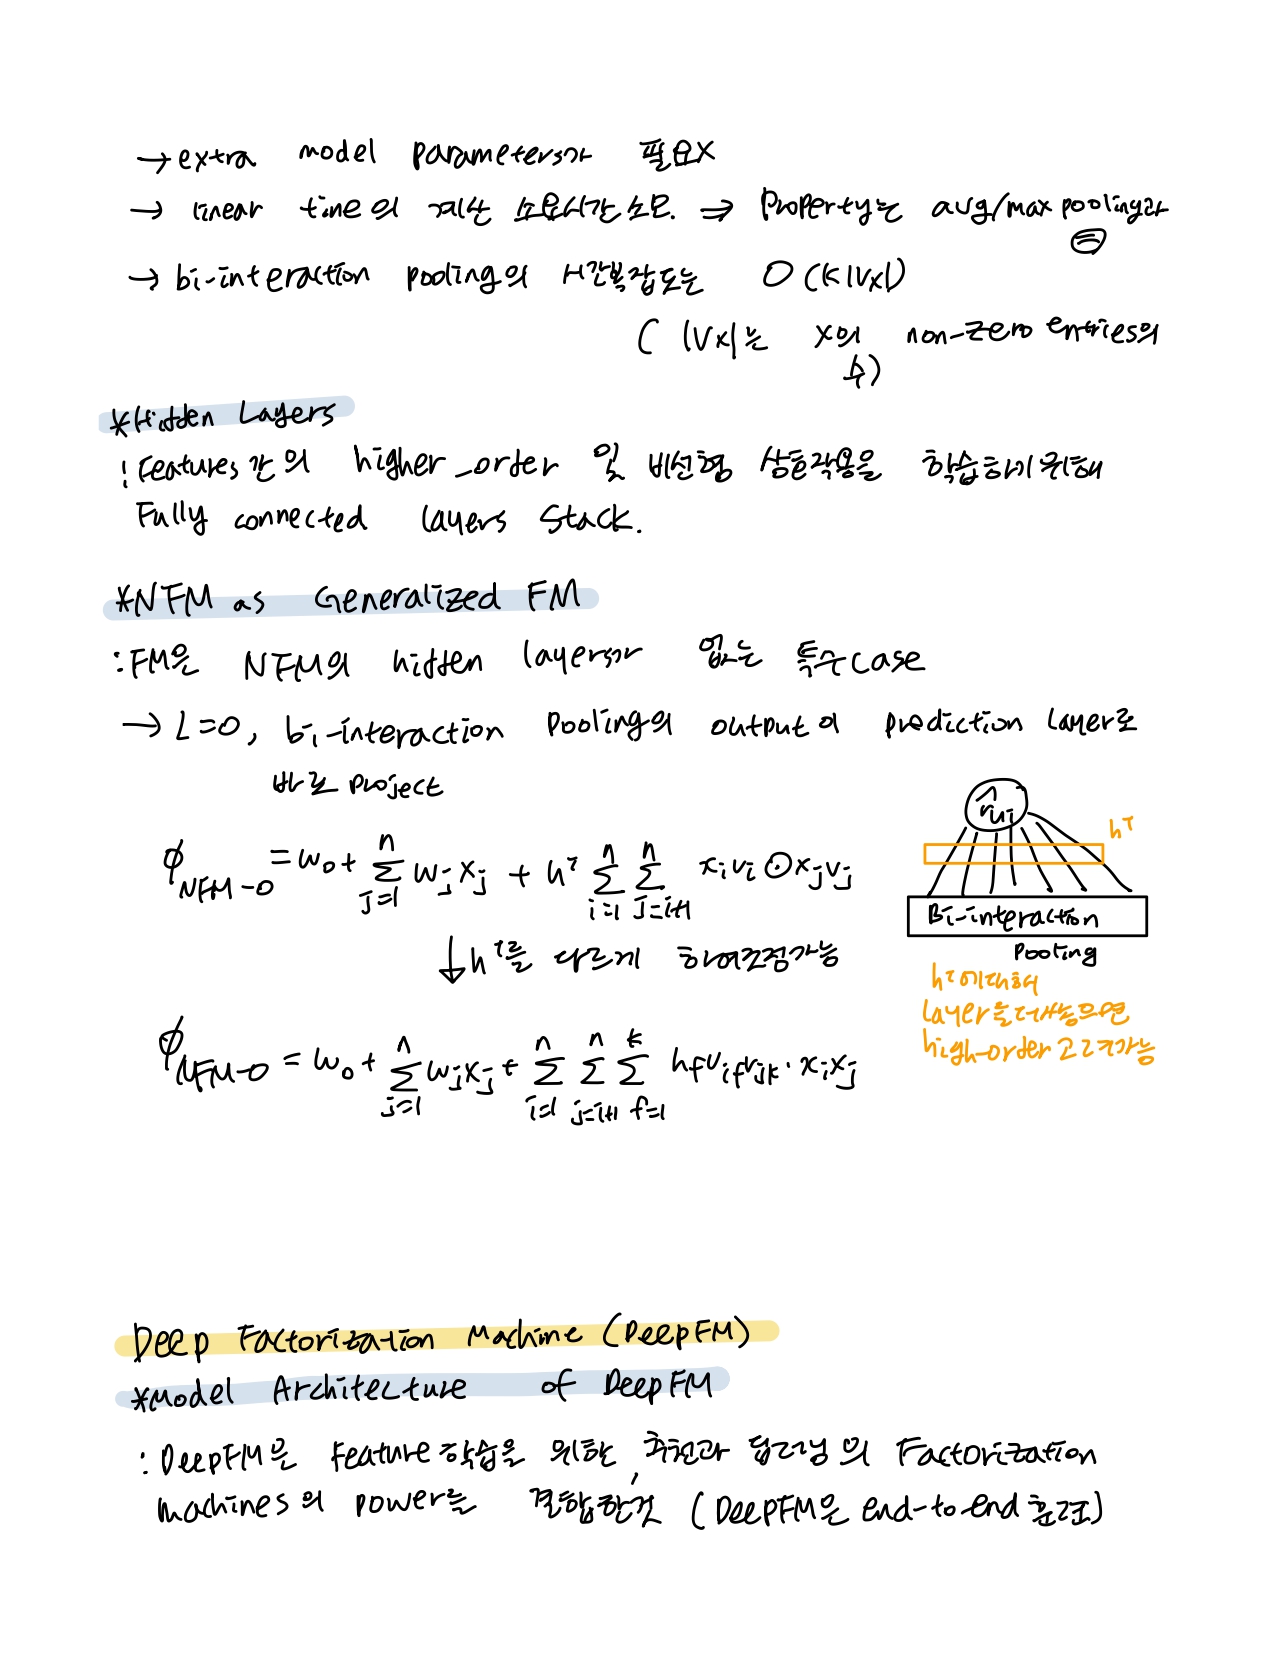 → extra model parameters가 필요X
→ linear time의 계산 소요시간 소모. ⇒ Property는 avg/max pooling과
=
→ bi-interaction pooling의 시간복잡도는 O(K|Vx|)
( |Vx|는 x의 non-zero entries의
수)
*Hidden Layers
: Features간의 higher_order 및 비선형 상호작용을 학습하기위해
Fully connected layers stack.
*NFM as Generalized FM
: FM은 NFM의 hidden layers가 없는 특수 case
→ L=0, bi-interaction pooling의 output이 prediction layer로
바로 project
r̂ui
hᵀ
ϕNFM-0 = w₀ + Σ(j=1, n) wjxj + hᵀ Σ(i=1, n) Σ(j=i+1, n) xivi ⊙ xjvj
Bi-interaction
Pooling
↓ hᵀ를 다르게 하여조정가능
hᵀ에대해
layer을더쌓으면
high-order 고려가능
ϕNFM-0 = w₀ + Σ(j=1, n) wjxj + Σ(i=1, n) Σ(j=i+1, n) Σ(f=1, k) hfvifvjk · xixj
Deep Factorization Machine (DeepFM)
*Model Architecture of DeepFM
: DeepFM은 feature학습을 위한, 추천과 딥러닝의 Factorization
machines의 power를 결합한것 (DeepFM은 end-to-end 훈련)